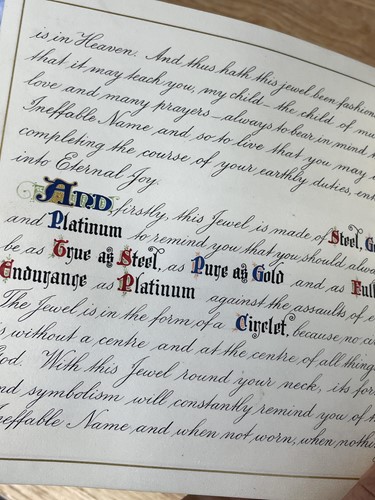 is in Heaven. And thus hath this jewel been fashion
that it may teach you, my child – the child of mu
love and many prayers – always to bear in mind
Ineffable Name and so to live that you may
completing the course of your earthly duties, ent
into Eternal Joy.
And, firstly, this Jewel is made of Steel, Go
and Platinum to remind you that you should alwa
be as True as Steel, as Pure as Gold and as Full
Endurance as Platinum against the assaults of
The Jewel is in the form of a Circlet, because no ci
is without a centre and at the centre of all things
God. With this Jewel round your neck, its for
nd symbolism will constantly remind you of t
neffable Name, and when not worn, when nothi